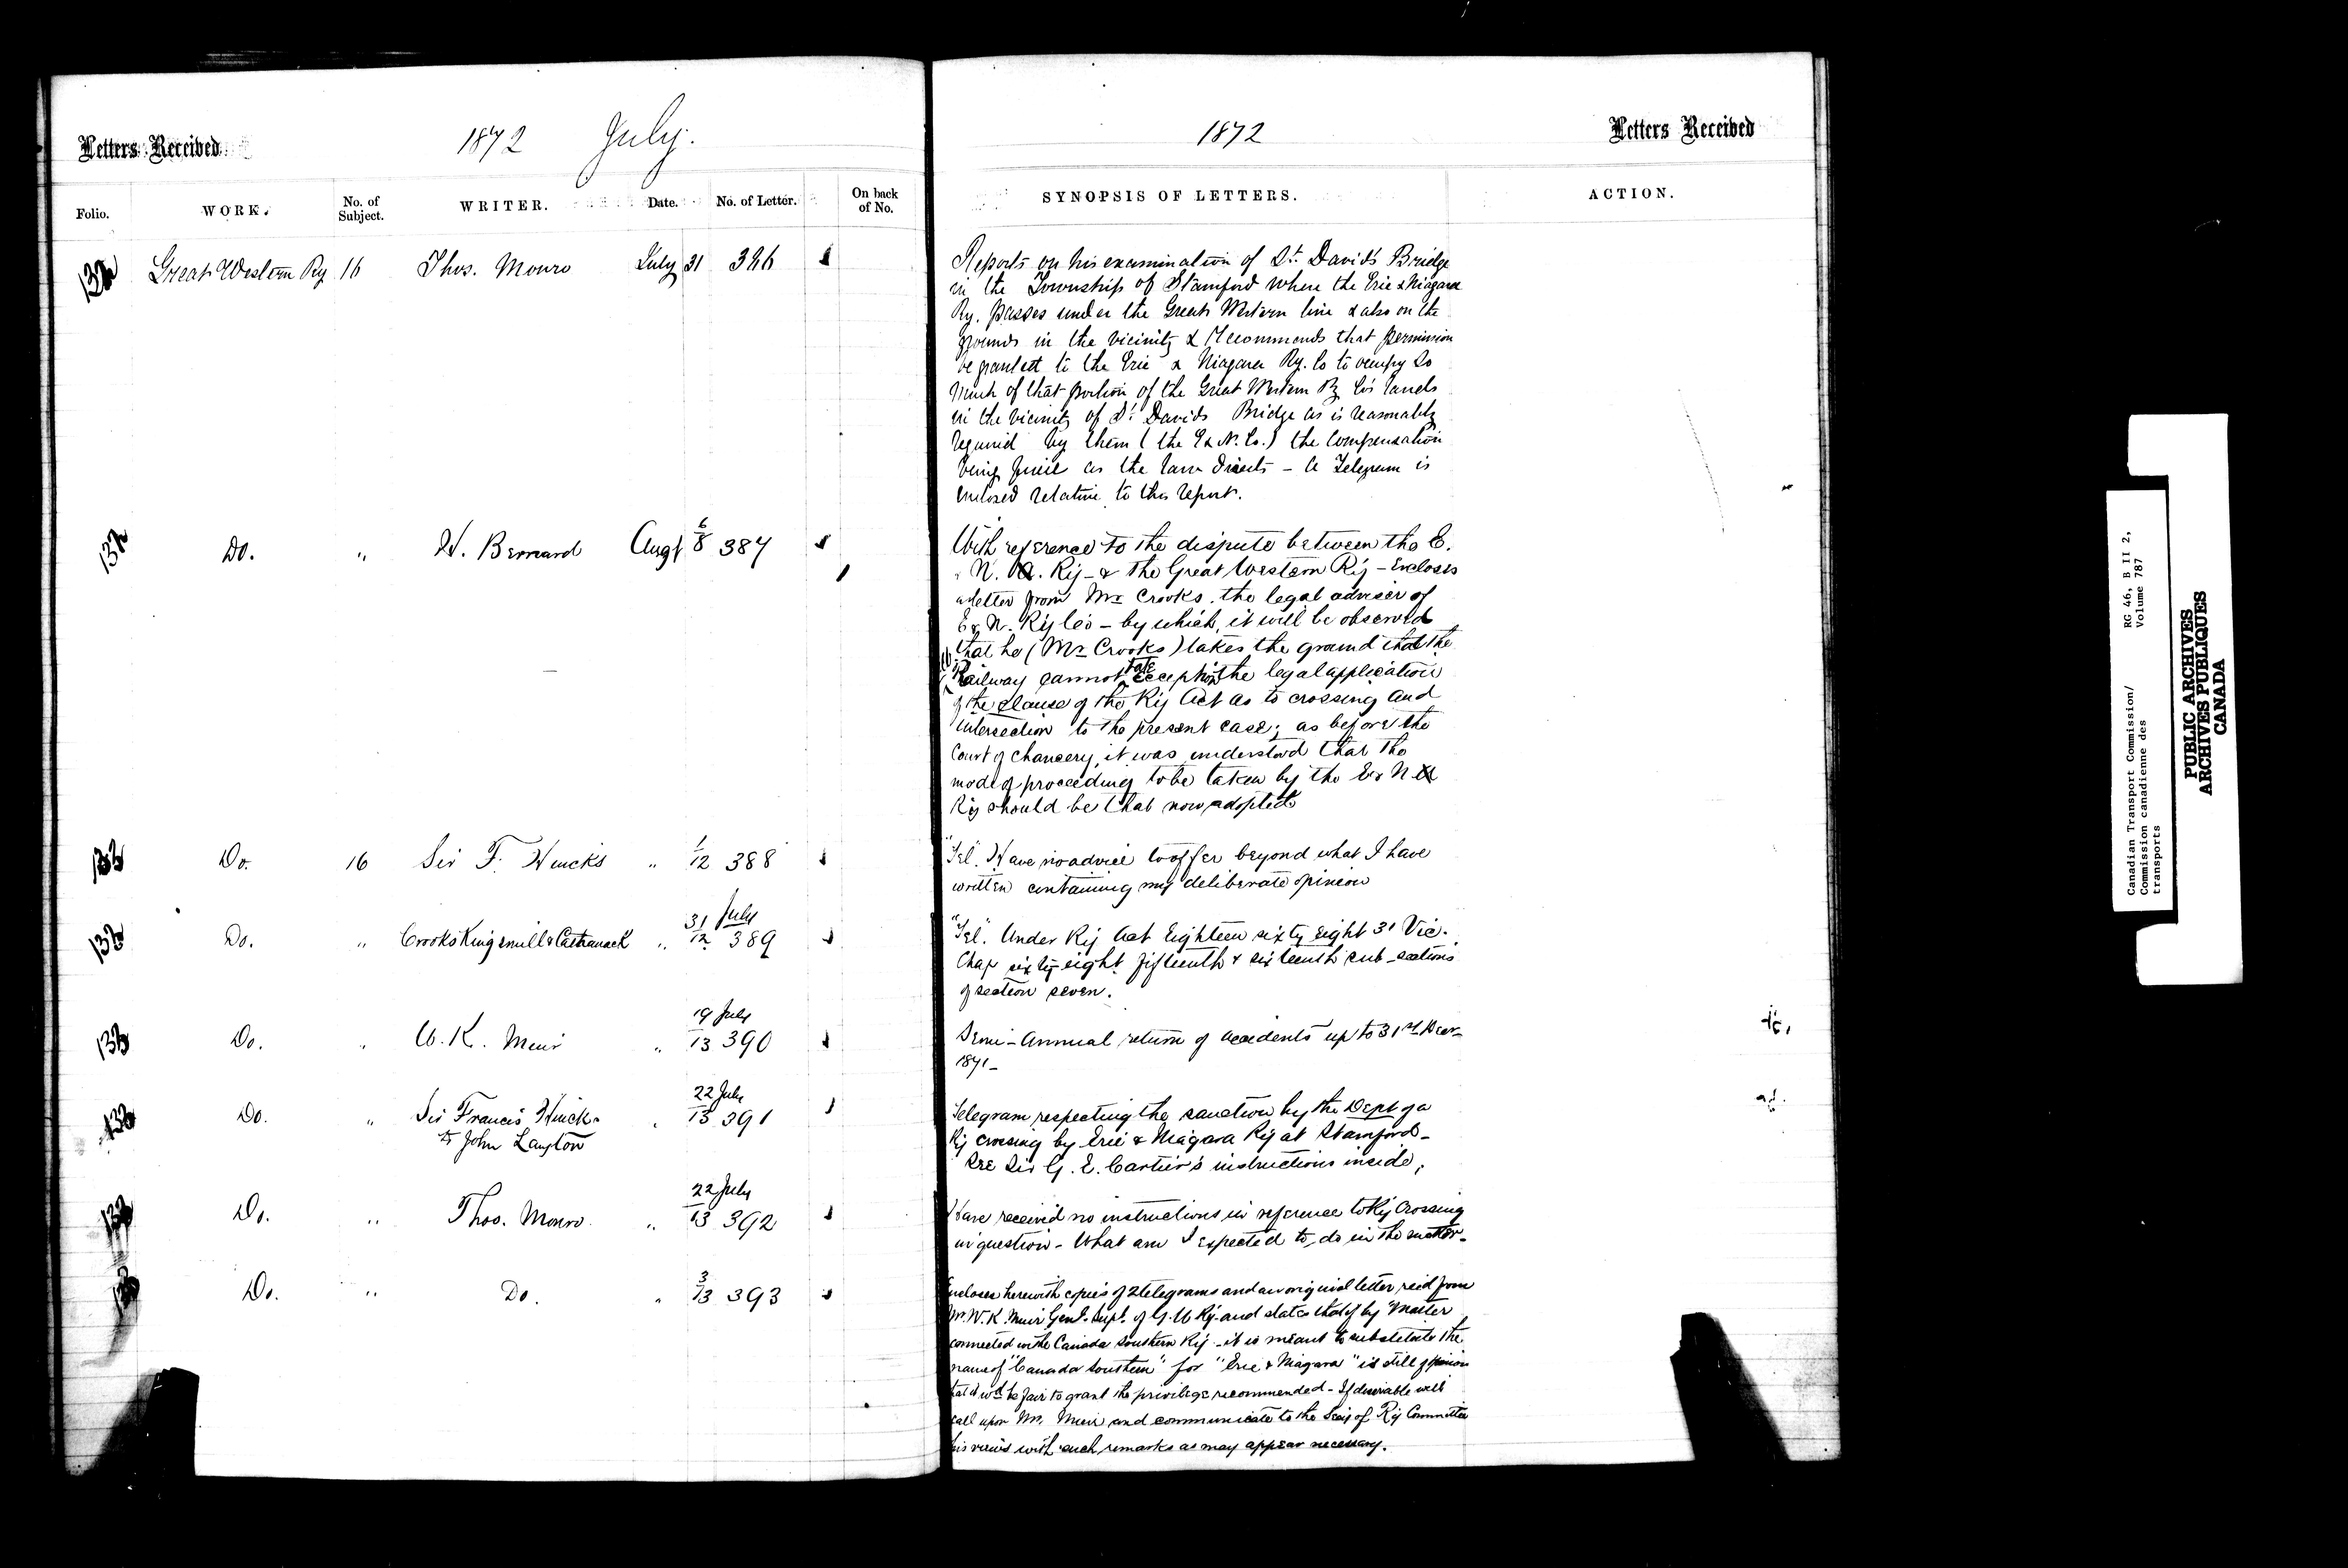 Letters Received
1872 July.
Folio.
WORK.
No. of Subject.
WRITER.
Date.
No. of Letter.
On back of No.
Great Western Ry 16 Thos. Monro July 31 386
Do. " H. Bernard Augt 6/8 387
Do. 16 Sir F. Hincks " 1/12 388
31 July
Do. " Crooks Kingsmill & Cattanach " 12 389
19 July
Do. " W. K. Muir " 13 390
22 July
Do. " Sir Francis Hincks " 13 391
to John Langton
22 July
Do. " Thos. Monro " 13 392
Do. " Do. " 3/13 393
1872
Letters Received
SYNOPSIS OF LETTERS.
ACTION.
Reports on his examination of St. David's Bridge
in the Township of Stamford where the Erie & Niagara
Ry. passes under the Great Western line & also on the
grounds in the vicinity & recommends that permission
be granted to the Erie & Niagara Ry. Co to occupy so
much of that portion of the Great Western Ry Co's lands
in the vicinity of St. Davids Bridge as is reasonably
required by them (the E & N. Co.) the compensation
being as the law directs - A Telegram is
enclosed relative to this report.
With reference to the dispute between the E.
& N. Ry - & the Great Western Ry - Encloses
a letter from Mr Crooks, the legal adviser of
E & N. Ry Co's - by which, it will be observed
that he (Mr Crooks) takes the ground that the
Railway cannot take exception to the legal application
of the clause of the Ry Act as to crossing and
intersection to the present case; as before the
Court of Chancery, it was understood that the
mode of proceeding to be taken by the E & N
Ry should be that now adopted
"Tel". Have no advice to offer beyond what I have
written containing my deliberate opinion
"Tel". Under Ry Act Eighteen sixty eight 31 Vic.
Chap sixty-eight fifteenth & sixteenth sub-sections
of section seven.
Semi-Annual return of accidents up to 31st Decr
1871-
Telegram respecting the sanction by the Dept of a
Ry crossing by Erie & Niagara Ry at Stamford-
See Sir G. E. Cartier's instructions inside.
Have received no instructions in reference to Ry Crossing
in question - What am I expected to do in the matter-
Encloses herewith copies of 2 telegrams and an original letter recd from
Mr. W. K. Muir Genl. Supt. of G. W Ry. and states that if by "Matter
connected with Canada Southern Ry - it is meant to substitute the
name of "Canada Southern" for "Erie & Niagara" is still of opinion
that it wd be fair to grant the privilege recommended - If desirable will
call upon Mr. Muir and communicate to the Secy of Ry Committee
his views with such remarks as may appear necessary.
Canadian Transport Commission/
Commission canadienne des
transports
RG 46, B II 2,
Volume 787
PUBLIC ARCHIVES
ARCHIVES PUBLIQUES
CANADA